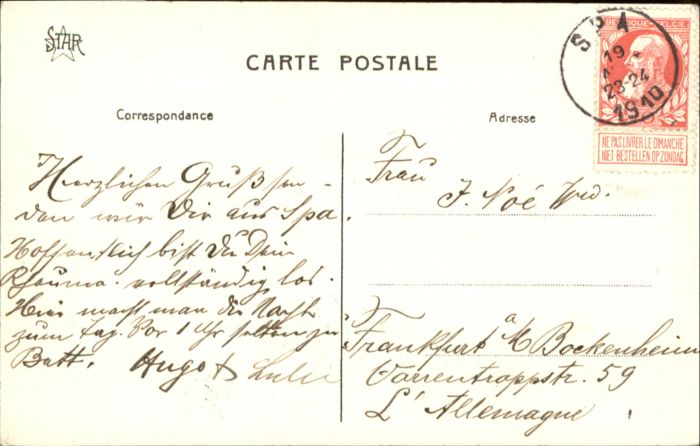 STAR
CARTE POSTALE
BELGIQUE-BELGIË
SPA
19
23-24
1910
NE PAS LIVRER LE DIMANCHE
NIET BESTELLEN OP ZONDAG
Correspondance
Herzlichen Gruß sen-
den wir Dir aus Spa.
Hoffentlich bist Du Dein
Rheuma vollständig los.
Hier macht man die Nacht
zum Tag. Vor 1 Uhr selten zu
Bett. Hugo &
Adresse
Frau
J. Noé Wwe.
Frankfurt a/M Bockenheim
Varrentrappstr. 59
L'Allemagne